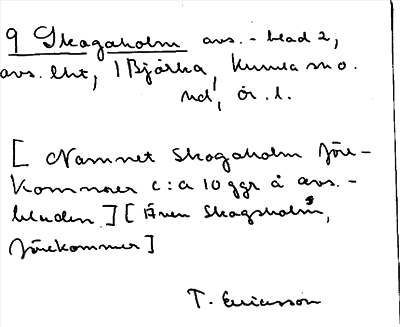 9 Skagaholm avs.-blad 2,
avs. lht, 1 Bjärka, Kumla sn o.
hd, ör. l.
[Namnet Skogaholm före-
kommer c:a 10 ggr å avs.-
bladen.] [Även Skogsholm,
förekommer]
T. Ericsson